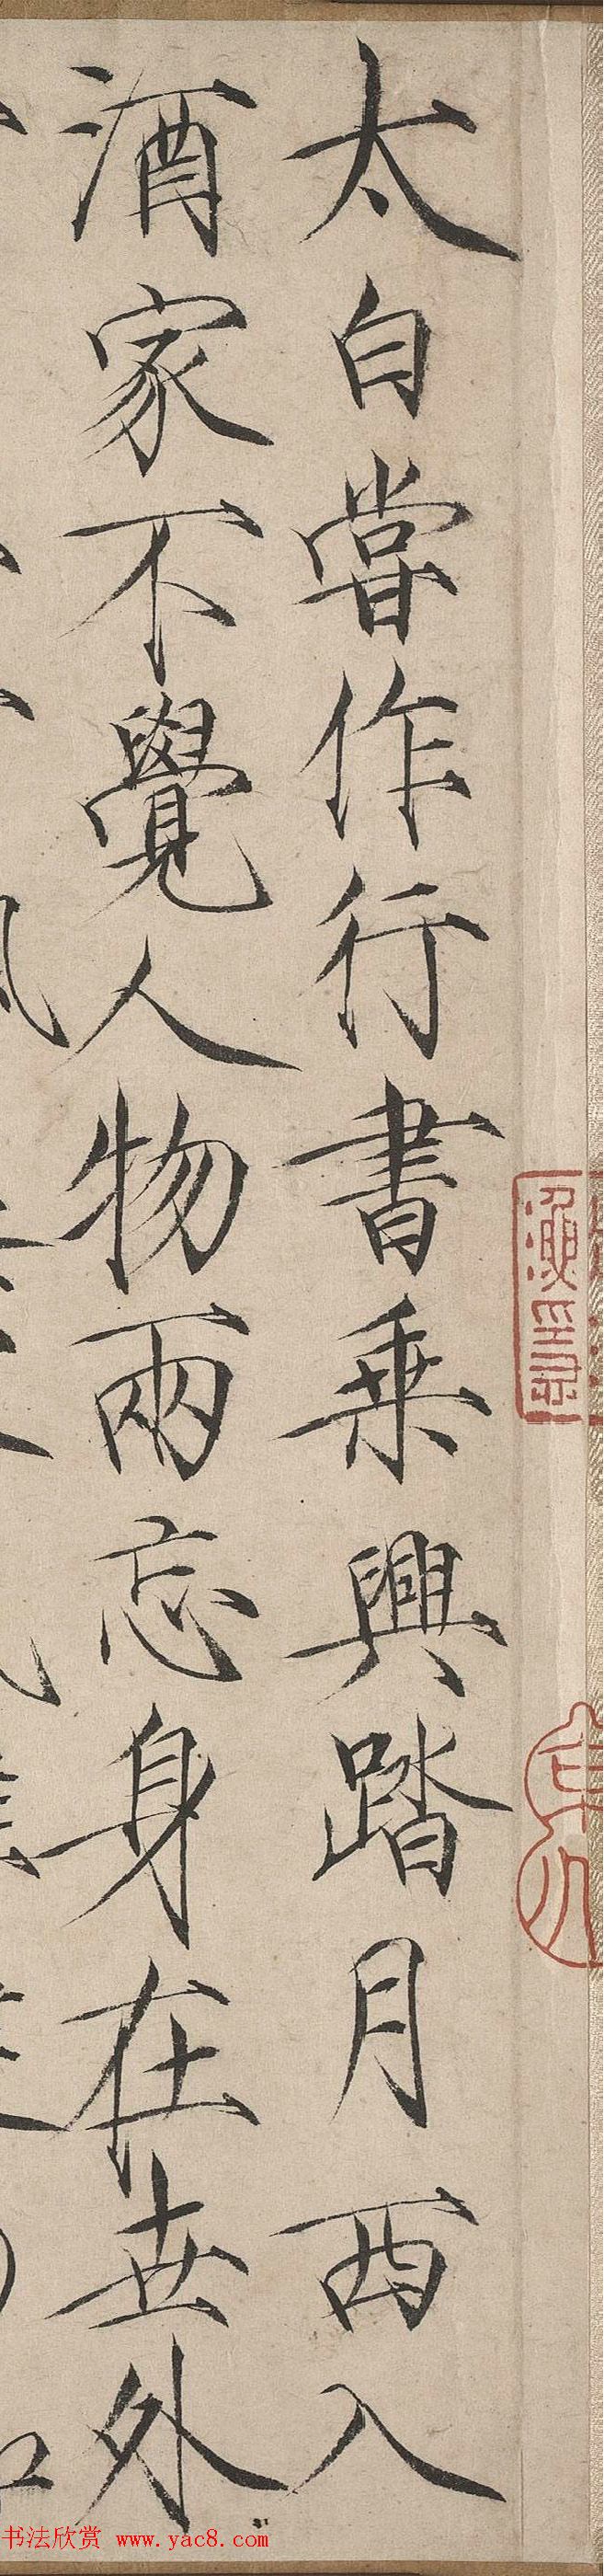 太白嘗作行書乘興踏月西入
酒家不覺人物兩忘身在世外
书法欣赏 www.yac8.com